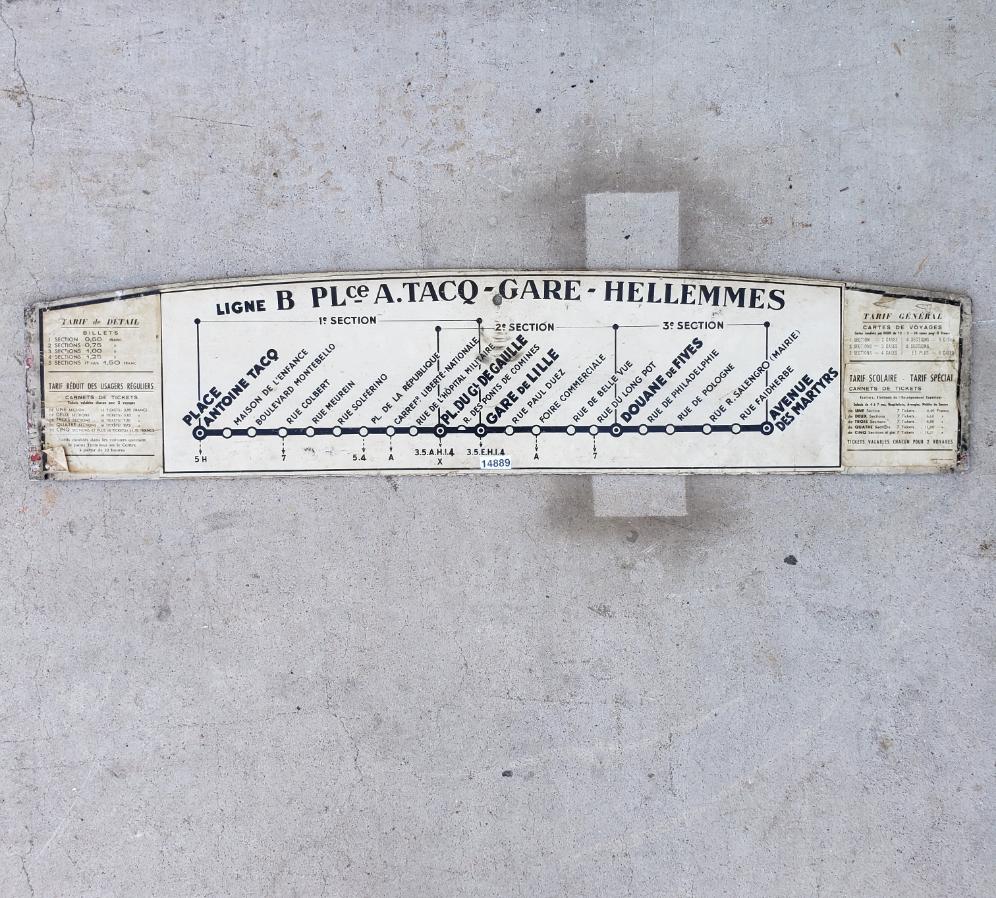 LIGNE B PLce A.TACQ - GARE - HELLEMMES
1e SECTION
2e SECTION
3e SECTION
PLACE ANTOINE TACQ
MAISON DE L'ENFANCE
BOULEVARD MONTEBELLO
RUE COLBERT
RUE MEUREIN
RUE SOLFÉRINO
PL. DE LA RÉPUBLIQUE
CARREFr LIBERTÉ NATIONALE
RUE DE L'HÔPITAL MILITAIRE
PL.DU Gl DE GAULLE
R. DES PONTS DE COMINES
GARE DE LILLE
RUE PAUL DUEZ
FOIRE COMMERCIALE
RUE DE BELLE VUE
RUE DU LONG POT
DOUANE DE FIVES
RUE DE PHILADELPHIE
RUE DE POLOGNE
RUE R. SALENGRO (MAIRIE)
RUE FAIDHERBE
AVENUE DES MARTYRS
5 H
7
5.4
A
3.5.A.H.I.4
X
3.5.E.H.I.4
A
7
14889
TARIF de DÉTAIL
BILLETS
1 SECTION 0,60
2 SECTIONS 0,75
3 SECTIONS 1,00
4 SECTIONS 1,25
5 SECTIONS 1,50
TARIF RÉDUIT DES USAGERS RÉGULIERS
CARNETS DE TICKETS
TARIF GÉNÉRAL
CARTES DE VOYAGES
TARIF SCOLAIRE - TARIF SPÉCIAL
CARNETS DE TICKETS
de UNE Section 7 Tickets
de DEUX Sections 7 Tickets
de TROIS Sections 7 Tickets
de QUATRE Sections 7 Tickets
TICKETS VALABLES CHACUN POUR 2 VOYAGES